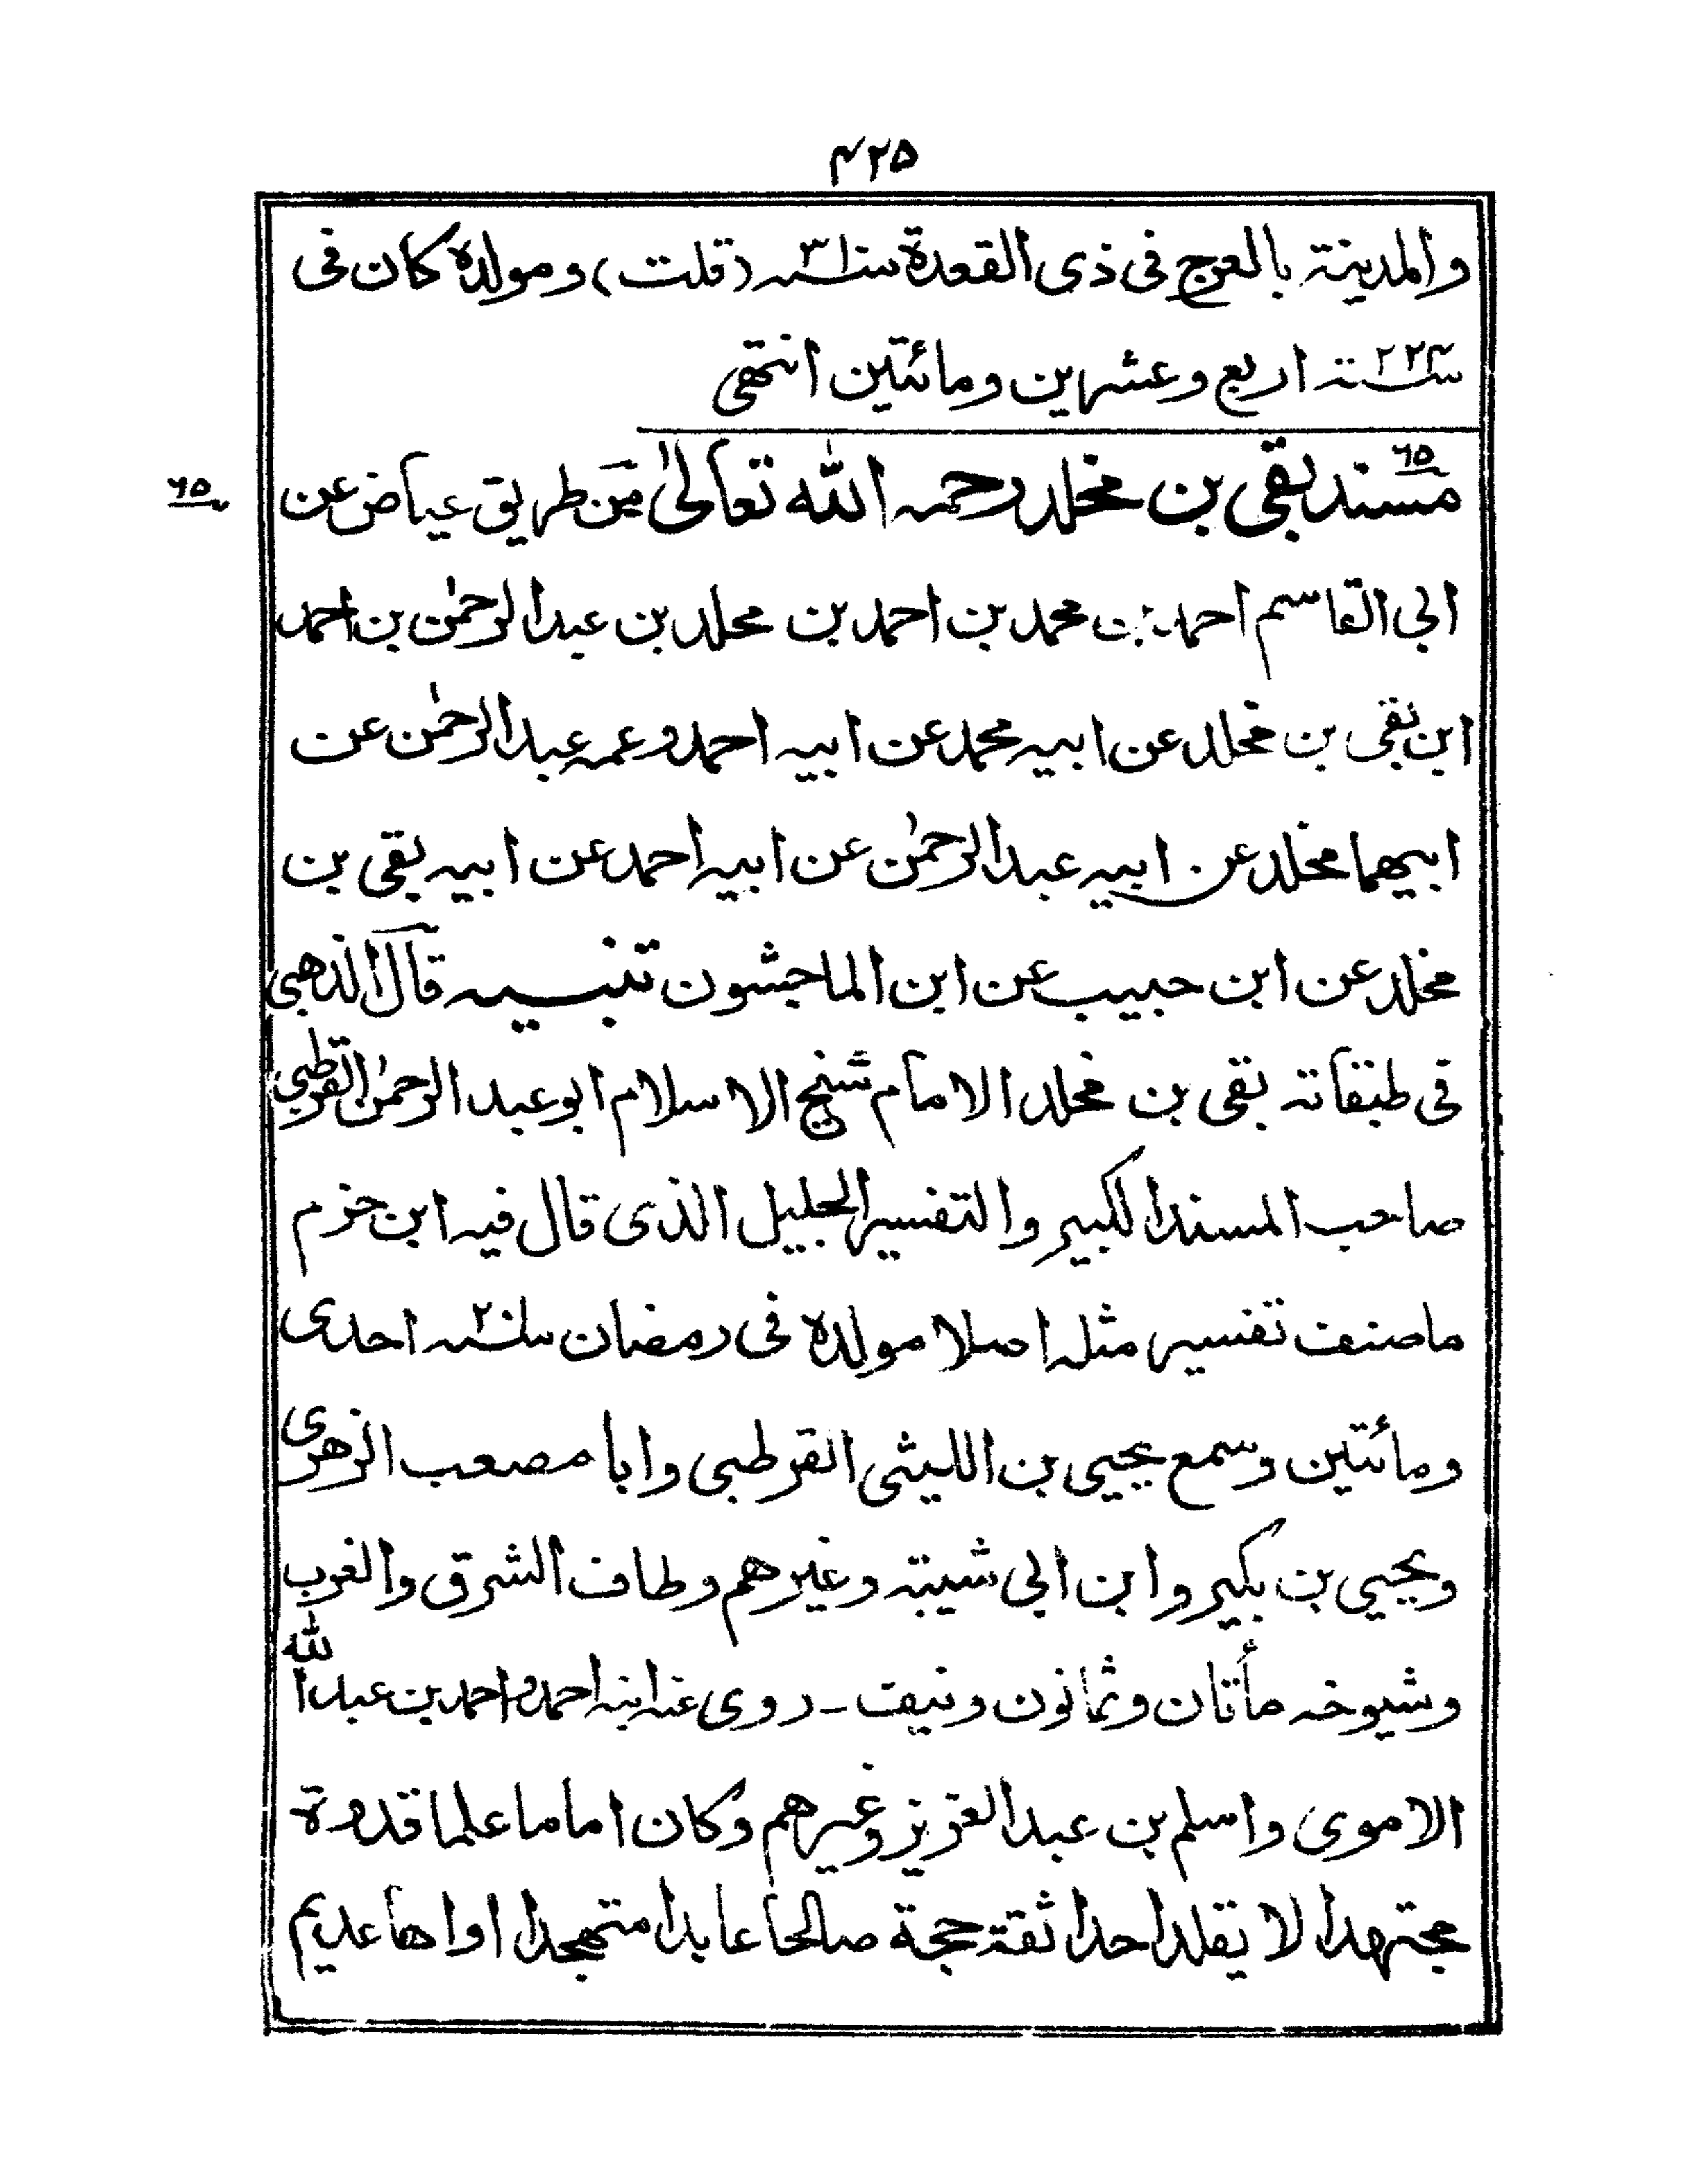 ۴۲۵
والمدینة بالعرج فی ذی القعدة سنة ۳۰۱ه (قلت) ومولده کان فی
سنة ۲۲۴ اربع وعشرین ومائتین انتهی
۶۵
مسند بقی بن مخلد رحمه الله تعالیٰ من طریق عیاض عن
۶۵
ابی القاسم احمد بن محمد بن احمد بن مخلد بن عبد الرحمٰن بن احمد
ابن بقی بن مخلد عن ابیه محمد عن ابیه احمد وعمه عبد الرحمٰن عن
ابیهما مخلد عن ابیه عبد الرحمٰن عن ابیه احمد عن ابیه بقی بن
مخلد عن ابن حبیب عن ابن الماجشون تنبیه قال الذهبی
فی طبقاته بقی بن مخلد الامام شیخ الاسلام ابو عبد الرحمٰن القرطبی
صاحب المسند الکبیر والتفسیر الجلیل الذی قال فیه ابن حزم
ما صنف تفسیر مثله اصلا مولده فی رمضان سنة ۲۰۱ه احدی
ومائتین وسمع یحیی بن اللیثی القرطبی وابا مصعب الزهری
ویحیی بن بکیر وابن ابی شیبة وغیرهم وطاف الشرق والغرب
وشیوخه مأتان وثمانون ونیف ـ روی عنه ابنه احمد واحمد بن عبد الله
الاموی واسلم بن عبد العزیز وغیرهم وکان اماما علما قدوة
مجتهدا لا یقلد احدا ثقة حجة صالحا عابدا متهجدا اواها عدیم